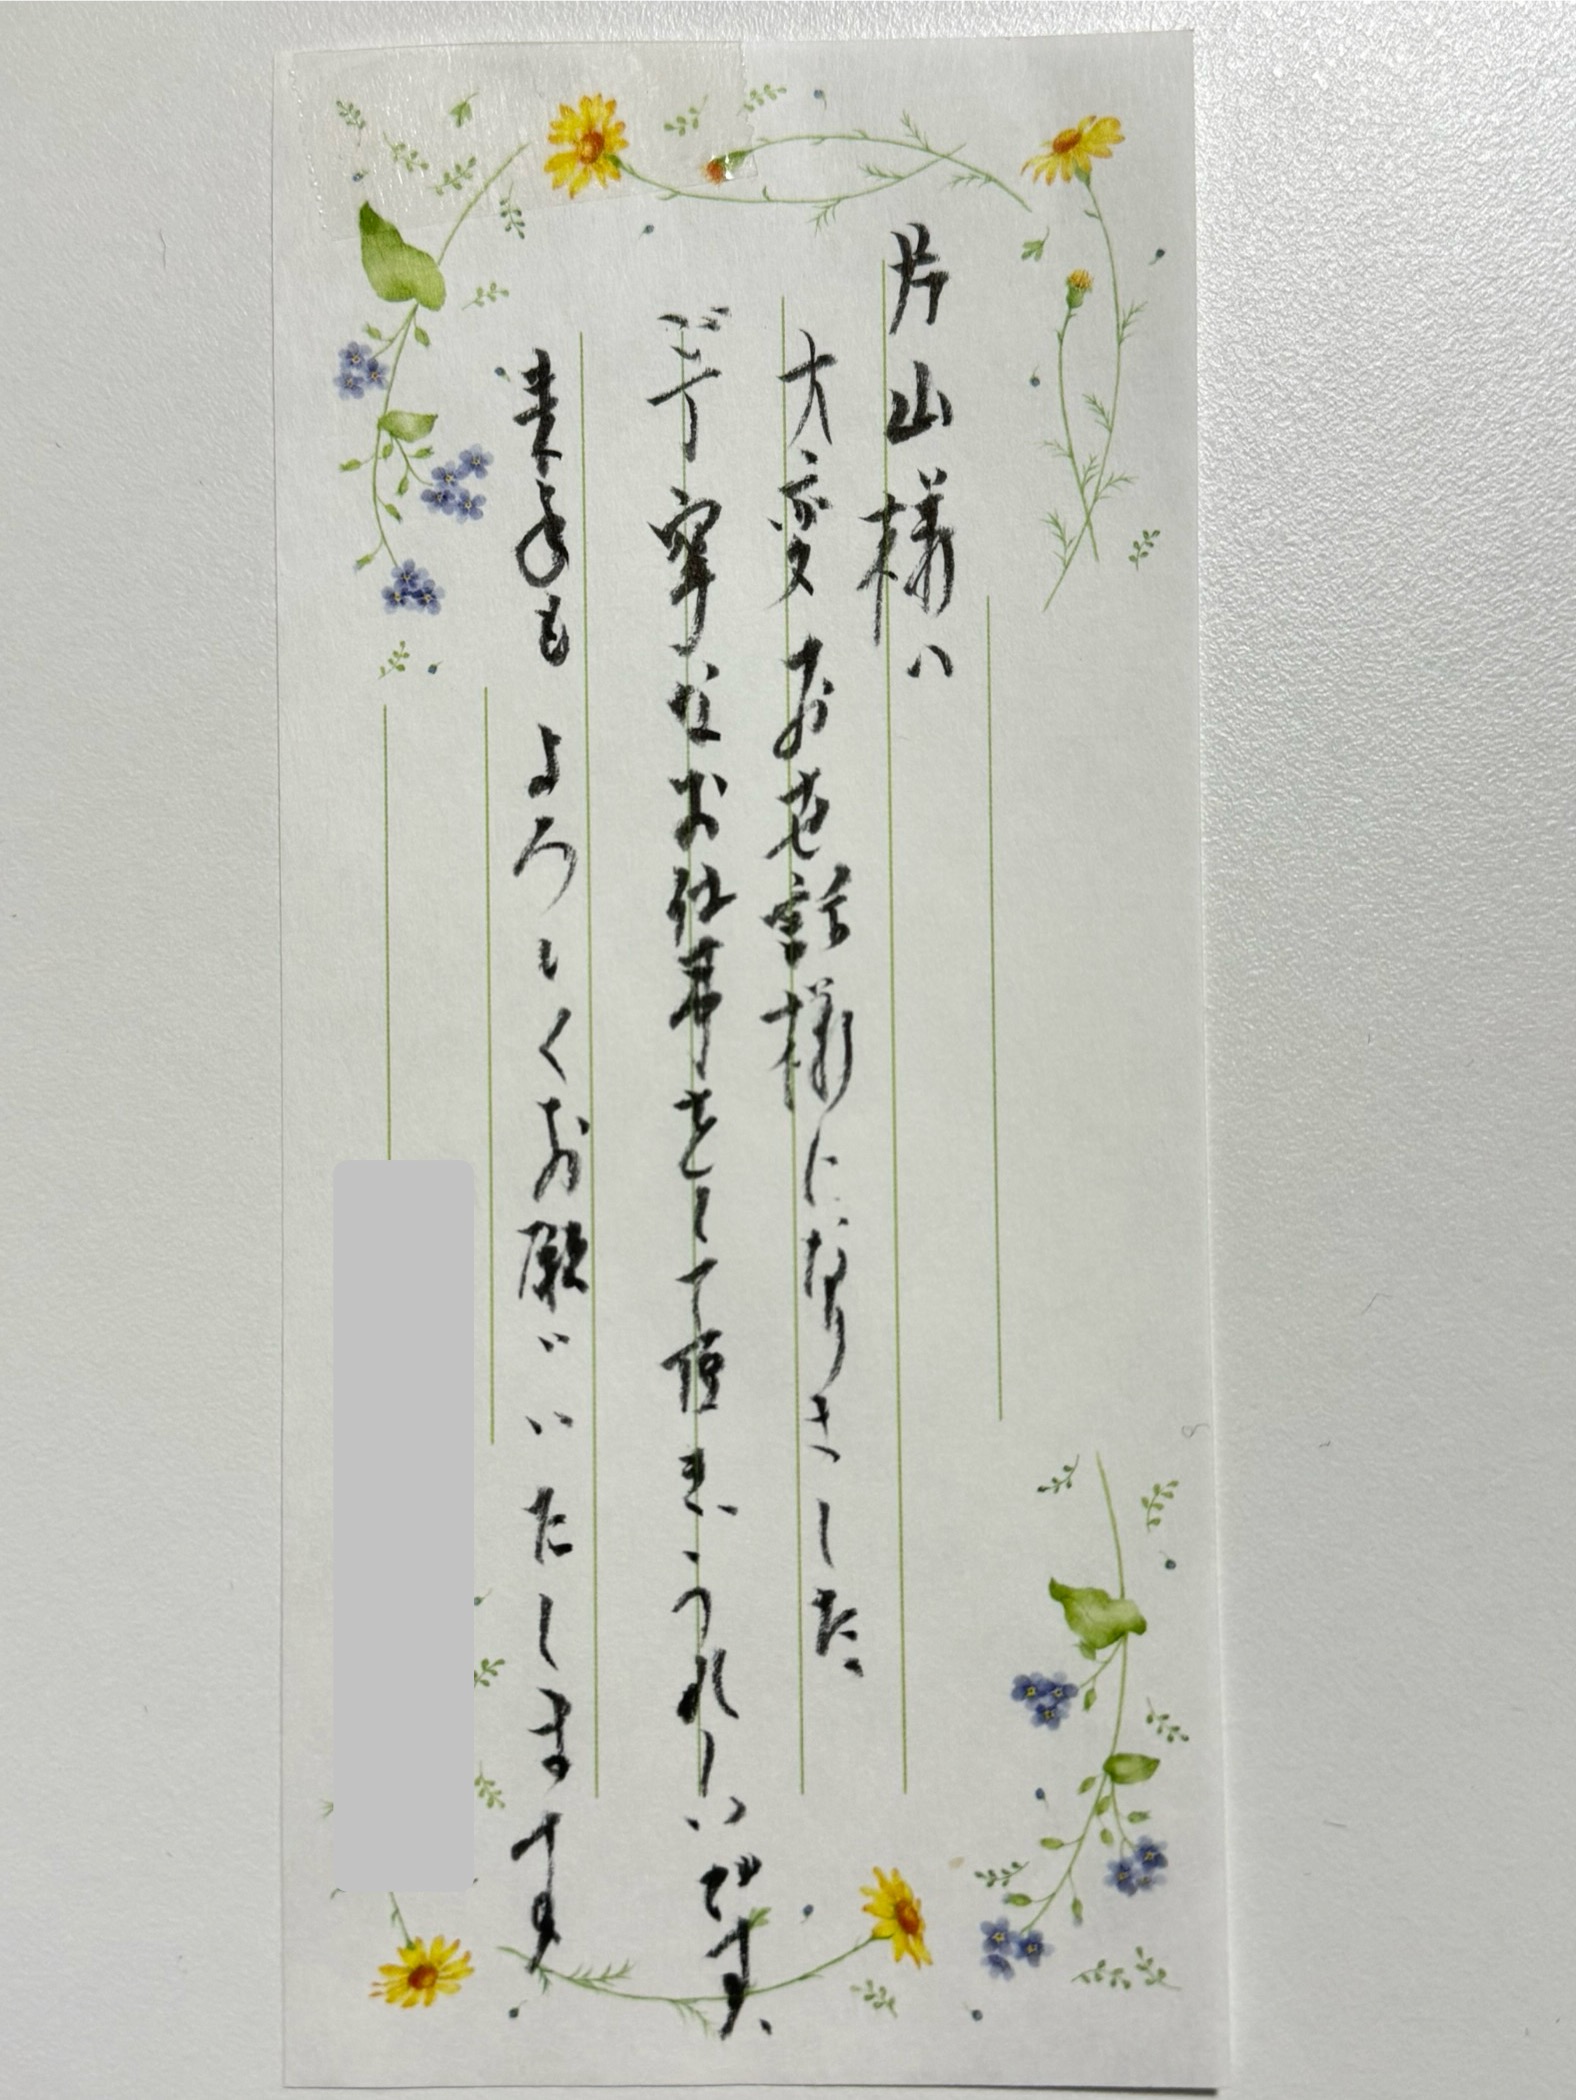 片山様ハ
大変お世話様になりました。
ご丁寧なお仕事をして頂きうれしいです。
来年もよろしくお願いいたします